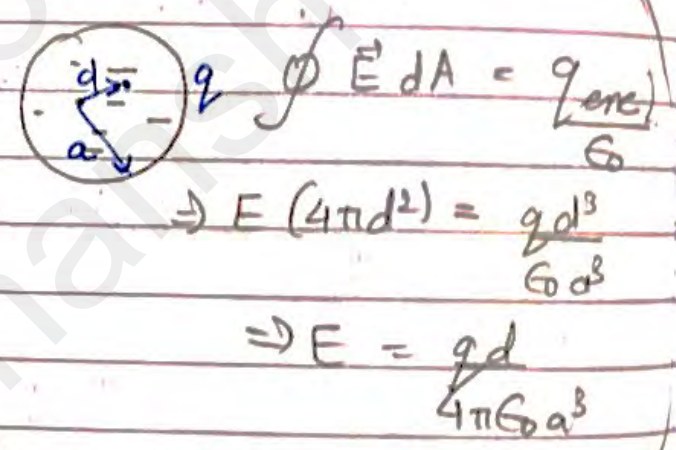 d q ∮ E⃗ dA = q enc / ε₀
a
⇒ E (4πd²) = qd³ / ε₀ a³
⇒ E = qd / 4πε₀ a³